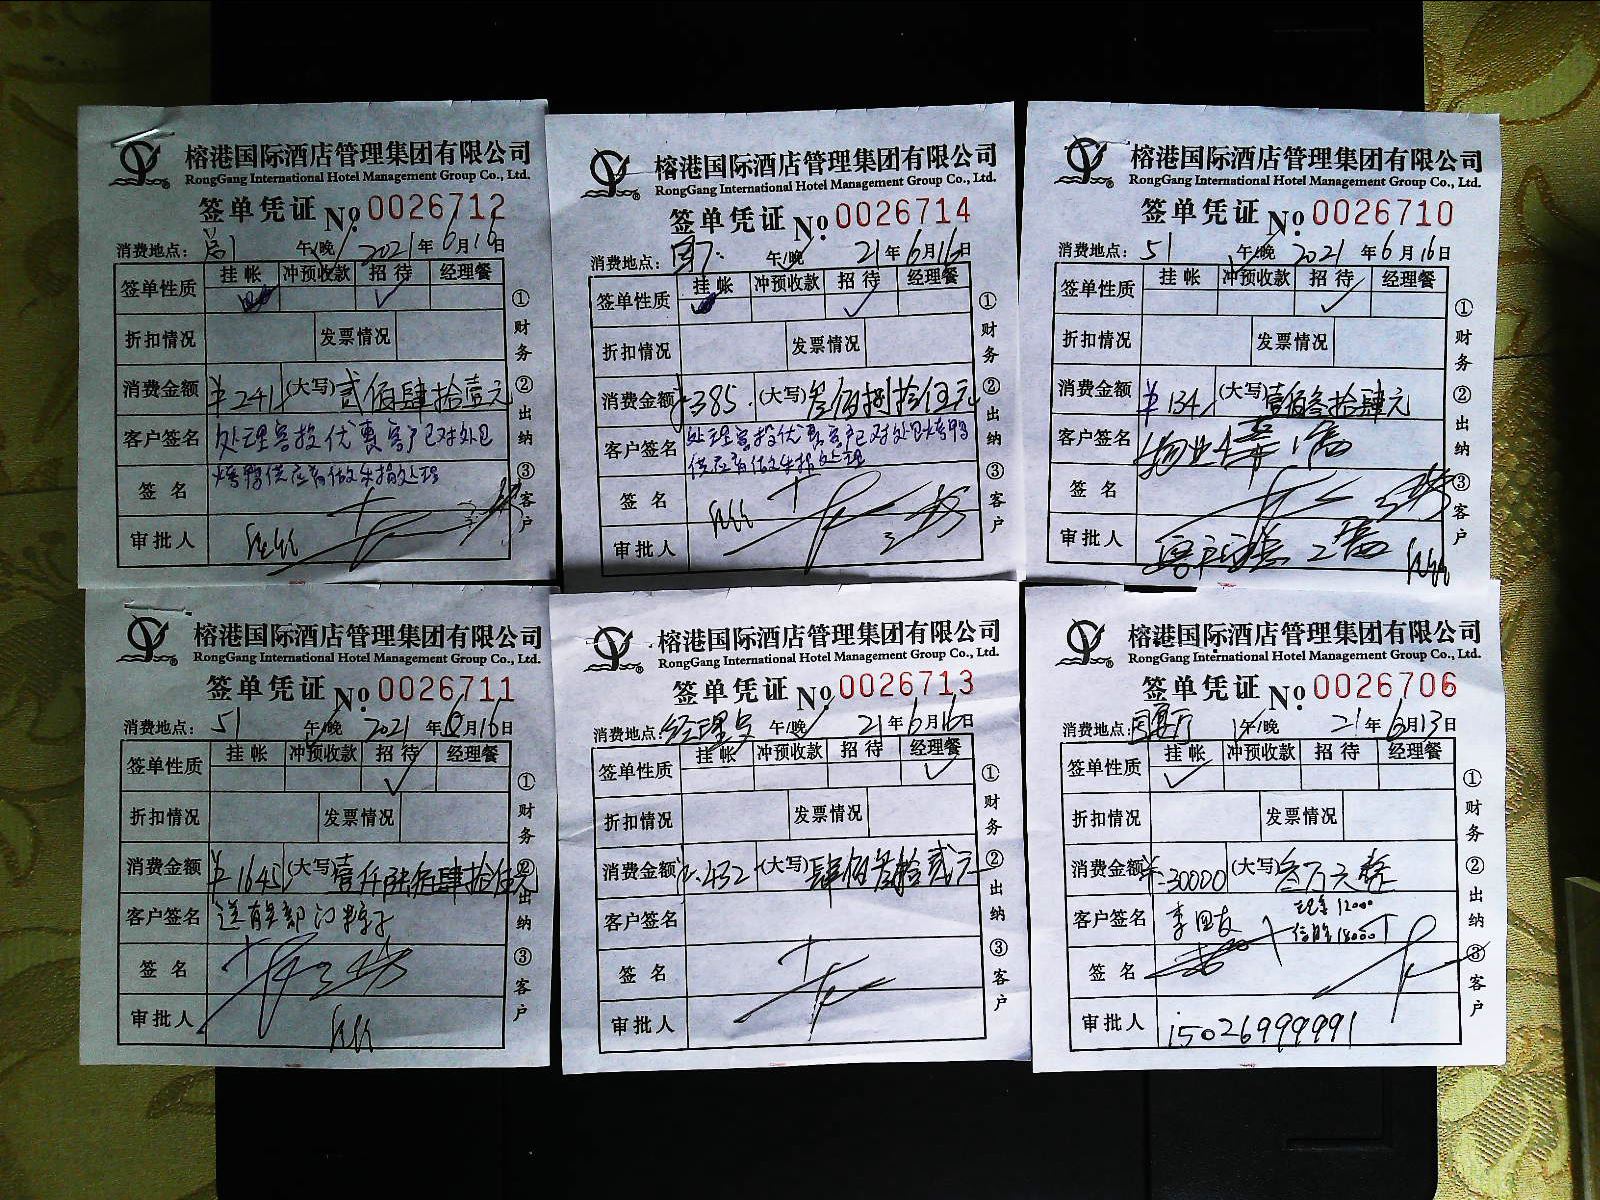 榕港国际酒店管理集团有限公司
RongGang International Hotel Management Group Co., Ltd.
签单凭证 No. 0026712
消费地点： 午/晚 2021年6月16日
签单性质 挂帐 冲预收款 招待 经理餐
折扣情况 发票情况
消费金额 ¥241 (大写) 贰佰肆拾壹元
客户签名 处理客投优惠客户已对外包
烤鸭供应商做失损处理
签名
审批人
①财务 ②出纳 ③客户
榕港国际酒店管理集团有限公司
RongGang International Hotel Management Group Co., Ltd.
签单凭证 No. 0026714
消费地点： 午/晚 21年6月16日
签单性质 挂帐 冲预收款 招待 经理餐
折扣情况 发票情况
消费金额 ¥385. (大写) 叁佰捌拾伍元
客户签名 处理客投优惠客户已对外包烤鸭
供应商做失损处理
签名
审批人
①财务 ②出纳 ③客户
榕港国际酒店管理集团有限公司
RongGang International Hotel Management Group Co., Ltd.
签单凭证 No. 0026710
消费地点： 51 午/晚 2021年6月16日
签单性质 挂帐 冲预收款 招待 经理餐
折扣情况 发票情况
消费金额 ¥134 (大写) 壹佰叁拾肆元
客户签名 物业
签名
审批人
①财务 ②出纳 ③客户
榕港国际酒店管理集团有限公司
RongGang International Hotel Management Group Co., Ltd.
签单凭证 No. 0026711
消费地点： 51 午/晚 2021年6月16日
签单性质 挂帐 冲预收款 招待 经理餐
折扣情况 发票情况
消费金额 ¥1645 (大写) 壹仟陆佰肆拾伍元
客户签名 送有关部门粽子
签名
审批人
①财务 ②出纳 ③客户
榕港国际酒店管理集团有限公司
RongGang International Hotel Management Group Co., Ltd.
签单凭证 No. 0026713
消费地点： 经理 午/晚 21年6月16日
签单性质 挂帐 冲预收款 招待 经理餐
折扣情况 发票情况
消费金额 ¥432 (大写) 肆佰叁拾贰元
客户签名
签名
审批人
①财务 ②出纳 ③客户
榕港国际酒店管理集团有限公司
RongGang International Hotel Management Group Co., Ltd.
签单凭证 No. 0026706
消费地点： 国宴厅 午/晚 21年6月13日
签单性质 挂帐 冲预收款 招待 经理餐
折扣情况 发票情况
消费金额 ¥30000 (大写) 叁万元整
客户签名 李国友 现金12000
18000
签名
审批人 15026999991
①财务 ②出纳 ③客户